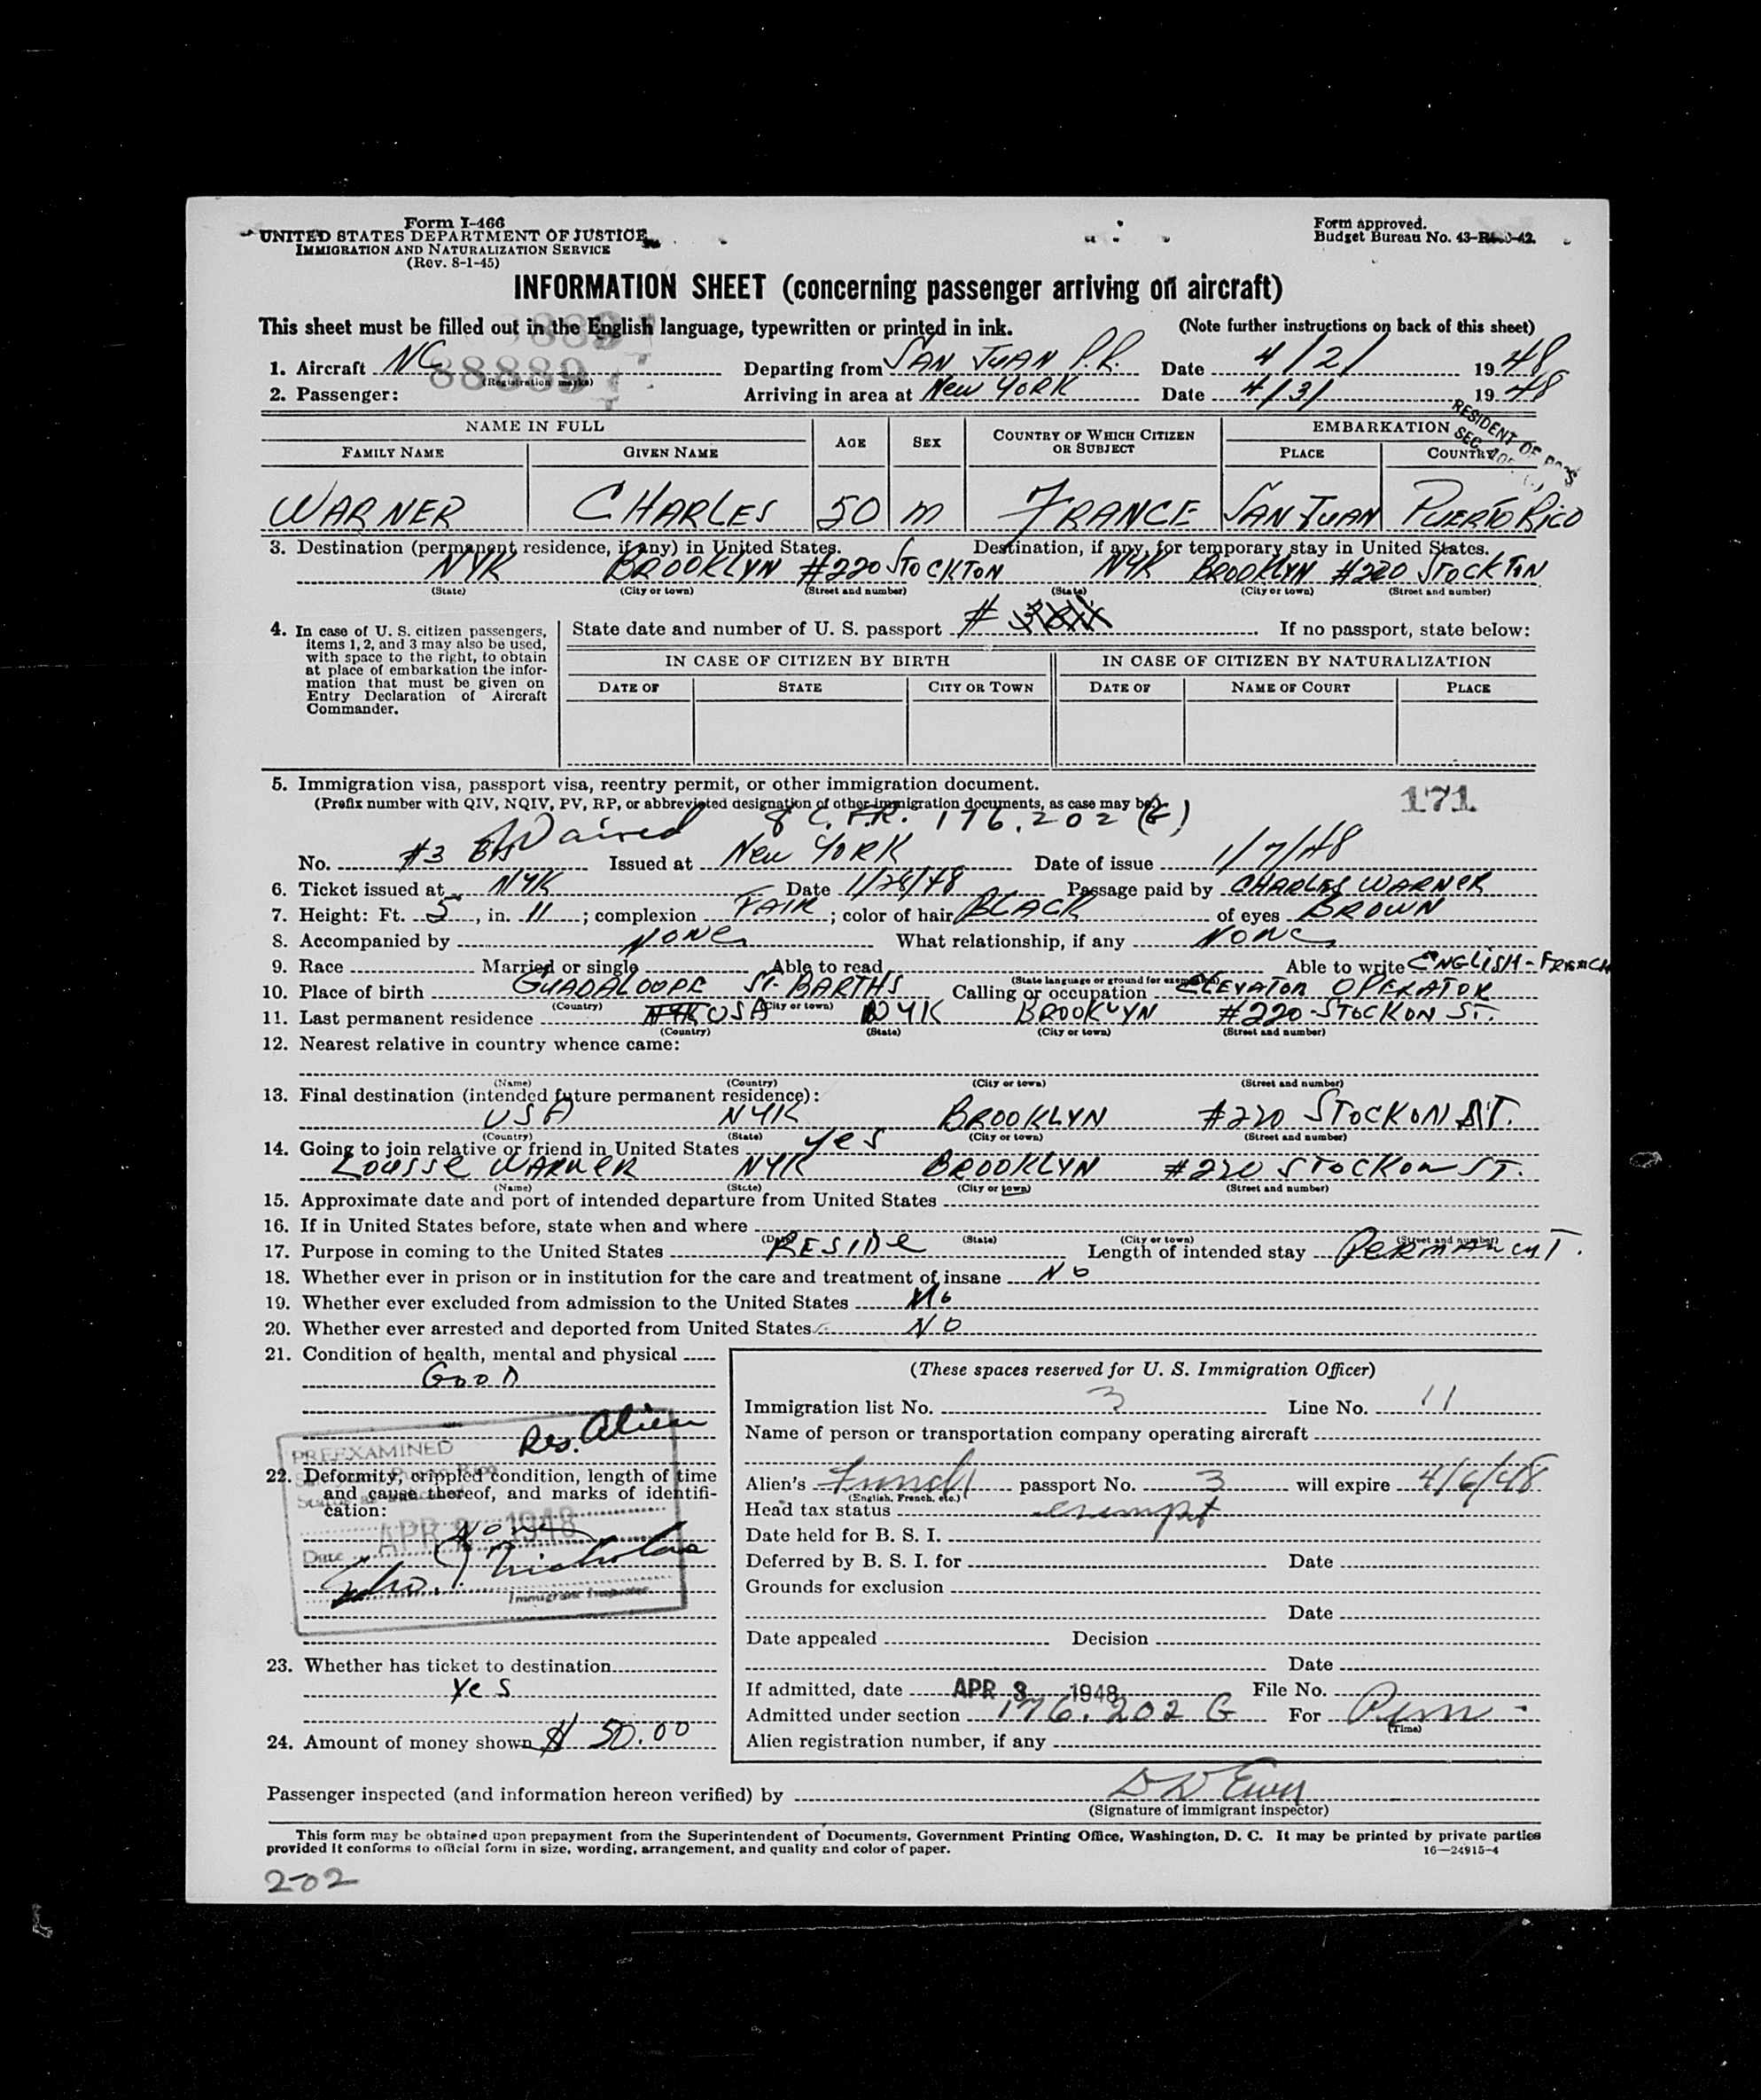 Form I-466
UNITED STATES DEPARTMENT OF JUSTICE
IMMIGRATION AND NATURALIZATION SERVICE
(Rev. 8-1-45)
Form approved.
Budget Bureau No. 43-
INFORMATION SHEET (concerning passenger arriving on aircraft)
This sheet must be filled out in the English language, typewritten or printed in ink. (Note further instructions on back of this sheet)
1. Aircraft NC 88889 (Registration marks) Departing from SAN JUAN P.R. Date 4/2/ 1948
2. Passenger: Arriving in area at New YORK Date 4/3/ 1948
RESIDENT OF
SEC.
NAME IN FULL AGE SEX COUNTRY OF WHICH CITIZEN OR SUBJECT EMBARKATION
FAMILY NAME GIVEN NAME PLACE COUNTRY
WARNER CHARLES 50 m FRANCE SAN JUAN PUERTO RICO
3. Destination (permanent residence, if any) in United States. Destination, if any, for temporary stay in United States.
NYK BROOKLYN #220 STOCKTON NYK BROOKLYN #220 STOCKTON
(State) (City or town) (Street and number) (State) (City or town) (Street and number)
4. In case of U. S. citizen passengers, items 1, 2, and 3 may also be used, with space to the right, to obtain at place of embarkation the information that must be given on Entry Declaration of Aircraft Commander.
State date and number of U. S. passport # If no passport, state below:
IN CASE OF CITIZEN BY BIRTH IN CASE OF CITIZEN BY NATURALIZATION
DATE OF STATE CITY OR TOWN DATE OF NAME OF COURT PLACE
5. Immigration visa, passport visa, reentry permit, or other immigration document.
(Prefix number with QIV, NQIV, PV, RP, or abbreviated designation of other immigration documents, as case may be.) 171
Waived 8 C.F.R. 176.202 (G)
No. #3 Issued at New YORK Date of issue 1/7/48
6. Ticket issued at NYK Date 1/28/48 Passage paid by CHARLES WARNER
7. Height: Ft. 5, in. 11; complexion FAIR; color of hair BLACK of eyes BROWN
8. Accompanied by NONE What relationship, if any NONE
9. Race Married or single Able to read Able to write ENGLISH-FRENCH
(State language or ground for exemption)
10. Place of birth GUADALOUPE ST. BARTHS Calling or occupation ELEVATOR OPERATOR
(Country) (City or town)
11. Last permanent residence USA NYK BROOKLYN #220 STOCKON ST.
(Country) (State) (City or town) (Street and number)
12. Nearest relative in country whence came:
(Name) (Country) (City or town) (Street and number)
13. Final destination (intended future permanent residence):
USA NYK BROOKLYN #220 STOCKON ST.
(Country) (State) (City or town) (Street and number)
14. Going to join relative or friend in United States yes
LOUSSE WARNER NYK BROOKLYN #220 STOCKON ST.
(Name) (State) (City or town) (Street and number)
15. Approximate date and port of intended departure from United States
16. If in United States before, state when and where
(Date) (State) (City or town) (Street and number)
17. Purpose in coming to the United States RESIDE Length of intended stay PERMANENT.
18. Whether ever in prison or in institution for the care and treatment of insane NO
19. Whether ever excluded from admission to the United States No
20. Whether ever arrested and deported from United States NO
21. Condition of health, mental and physical
GOOD
Res. Alien
PREEXAMINED
22. Deformity, crippled condition, length of time and cause thereof, and marks of identification:
None
APR 1948
Date
Nicholas
Immigrant Inspector
23. Whether has ticket to destination
yes
24. Amount of money shown $ 50.00
(These spaces reserved for U. S. Immigration Officer)
Immigration list No. 3 Line No. 11
Name of person or transportation company operating aircraft
Alien's French passport No. 3 will expire 4/6/48
(English, French, etc.)
Head tax status exempt
Date held for B. S. I.
Deferred by B. S. I. for Date
Grounds for exclusion
Date
Date appealed Decision
Date
If admitted, date APR 3 1948 File No.
Admitted under section 176.202 G For Perm
(Time)
Alien registration number, if any
Passenger inspected (and information hereon verified) by
(Signature of immigrant inspector)
This form may be obtained upon prepayment from the Superintendent of Documents, Government Printing Office, Washington, D. C. It may be printed by private parties
provided it conforms to official form in size, wording, arrangement, and quality and color of paper. 16—24915-4
202